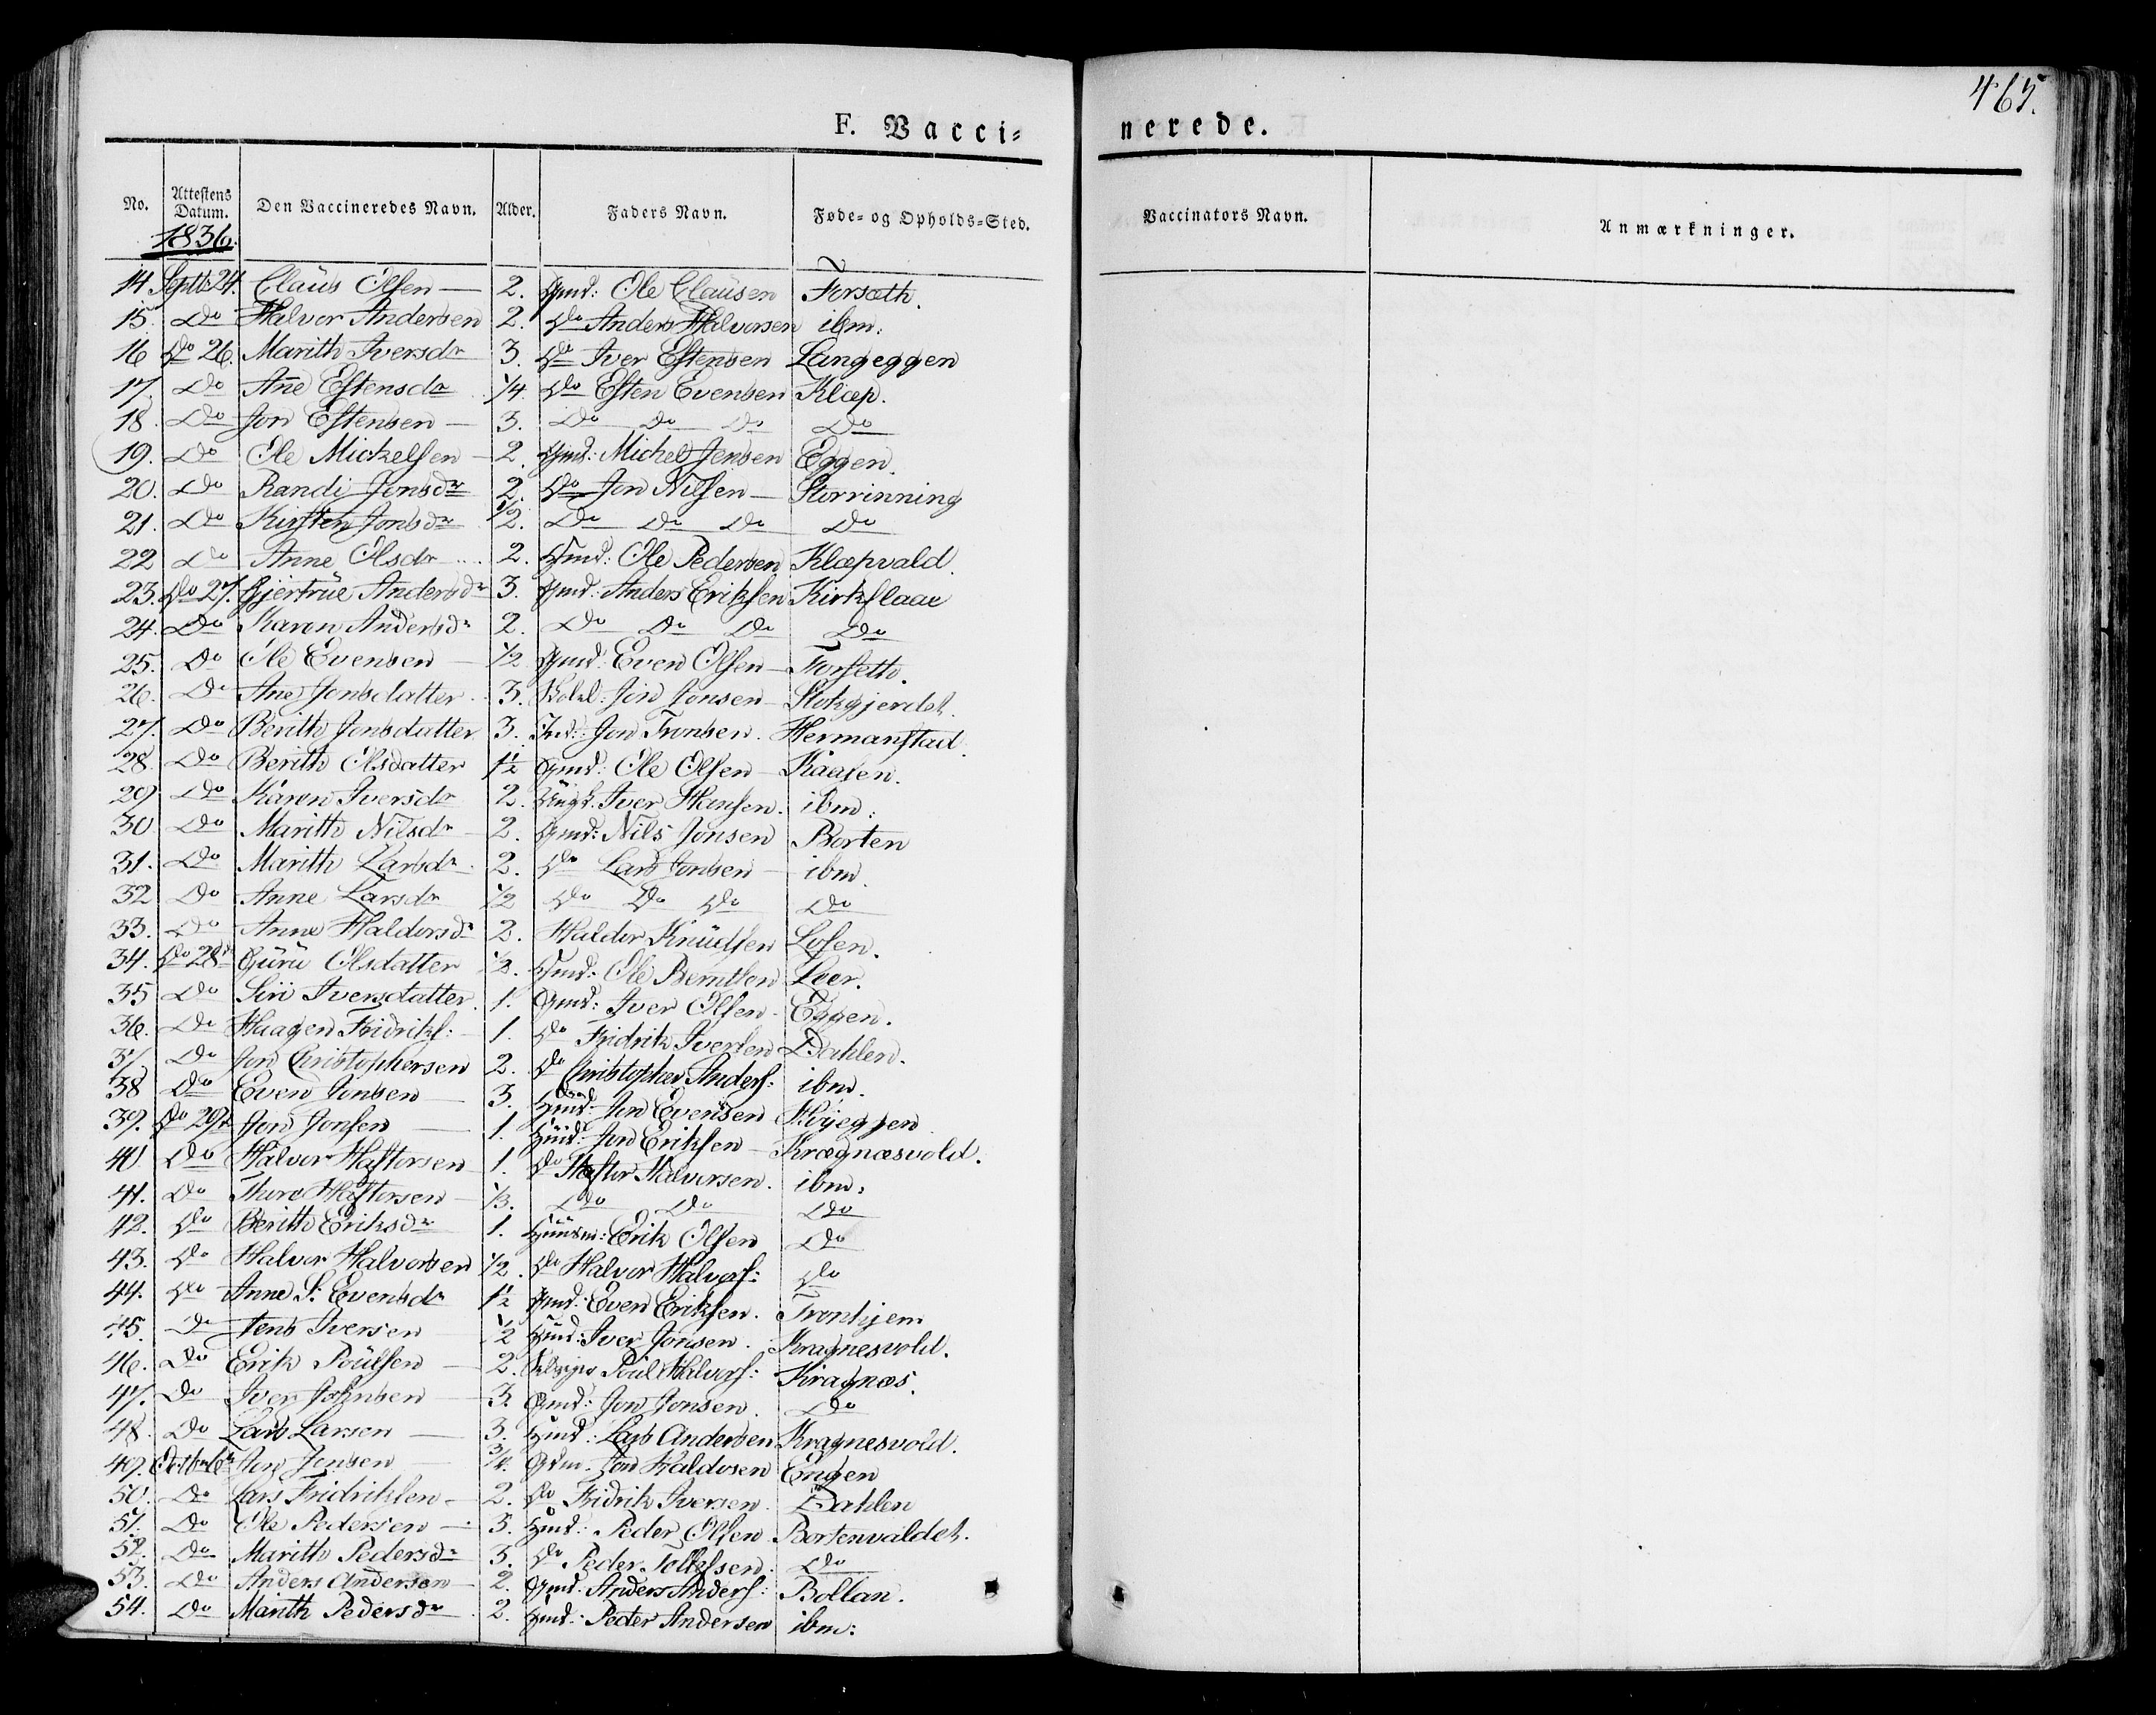 465.
F. Vacci-
nerede.
No. Attestens Datum. Den Vaccineredes Navn. Alder. Faders Navn. Føde- og Opholds-Sted. Vaccinators Navn. Anmærkninger.
1836.
14 Septb: 24. Claus Olsen — 2. Gmd: Ole Clausen Forsæth.
15. Do Halvor Andersen 2. Do Anders Halvorsen ibm:
16 Do 26. Marith Iversdr 3. Do Iver Estensen Langeggen
17. Do Ane Estensdr 1/4. Do Esten Evensen Klæp.
18. Do Jon Estensen — 3. Do Do Do Do
19. Do Ole Mickelsen — 2. Gmd: Michel Jensen Eggen.
20. Do Randi Jonsdr 2. Do Jon Nilsen — Storrinning
21. Do Kirsten Jonsdr 1/2. Do Do Do Do
22 Do Anne Olsdr 2. Hmd: Ole Pedersen Klæpvald.
23. Do 27. Gjertrue Andersdr 3. Gmd: Anders Eriksen Kirkflaae
24. Do Karen Andersdr 2. Do Do Do Do
25. Do Ole Evensen — 1/2 Gmd: Even Olsen — Forseth.
26. Do Ane Jonsdatter 3. Jon Jonsen — Stokgjerdet.
27. Do Berith Jonsdatter 3. Jon Tronsen. Hermanstad.
28. Do Berith Olsdatter 1½ Gmd: Ole Olsen — Kaasen.
29 Do Karen Iversdr 2. Iver Hansen. ibm:
30 Do Marith Nilsdr — 2. Gmd: Nils Jonsen Borten
31. Do Marith Larsdr 2. Do Lars Jonsen — ibm.
32 Do Anne Larsdr 1/2 Do Do Do Do
33. Do Anne Haldorsdr 2. Haldor Knudsen Losen.
34. Do 28de Guru Olsdatter 1/2. Hmd: Ole Berntsen Leer.
35 Do Siri Iversdatter. 1. Gmd: Iver Olsen — Eggen.
36. Do Haagen Fridriks: 1. Do Fridrik Iversen Dahlen.
37. Do Jon Christophersen 2. Do Christopher Anders: ibm.
38 Do Even Jonsen — 3. Jon Evensen Høyeggen
39. Do 29de Jon Jonsen — 1. Hmd: Jon Eriksen — Krægnæsvold.
40. Do Halvor Haftorsen 1. Do Haftor Halvorsen. ibm:
41. Do Thore Haftorsen — 1/3. Do Do Do
42. Do Berith Eriksdr 1. Huusm: Erik Olsen Do
43. Do Halvor Halvorsen 1/2. Do Halvor Halvors: Do
44. Do Anne S: Evensdr 1½ Gmd: Even Eriksen. Tronhjem
45. Do Jens Iversen 1/2 Hmd: Iver Jonsen. Kragnesvold.
46. Do Erik Poulsen — 2. Poul Halvors: Kragnæs.
47. Do Iver Johnsen — 3. Gmd: Jon Jonsen. Do
48. Do Lars Larsen — 3. Hmd: Lars Andersen Kragnesvold.
49. Octbr 6te Jon Jonsen — 3/4. Gdm. Jon Haldosen Engen
50. Do Lars Fridriksen — 2. Do Fridrik Iversen. Dahlen
51. Do Ole Pedersen — 3. Hmd: Peder Olsen Bortenvaldet.
52. Do Marith Pedersdr 3. Do Peder Tollefsen. Do
53. Do Anders Andersen — 2. Gmd. Anders Anders: Bollan.
54. Do Marith Pedersdr 2. Hmd: Peder Andersen ibm: